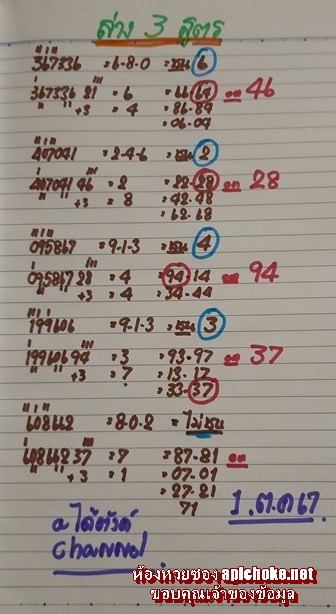 ล่าง 3 สูตร
367336 = 6-8-0 = ชน 6
367336 21 = 6 = 66-67 ออก 46
+3 = 4 = 86-89
= 06-09
407041 = 2-4-6 = ชน 2
407041 46 = 2 = 22-28 ออก 28
+3 = 8 = 42-48
= 62-68
095867 = 9-1-3 = ชน 4
095867 28 = 4 = 94-14 ออก 94
+3 = 4 = 34-44
199606 = 9-1-3 = ชน 3
199606 94 = 3 = 93-97 ออก 37
+3 = 7 = 13-17
= 33-37
608662 = 8-0-2 = ไม่ชน
608662 37 = 7 = 87-81 ออก
+3 = 1 = 07-01
= 27-21
71
1.ต.ค 67
Channel
ห้องหวยซอง aplchoke.net
ขอบคุณเจ้าของข้อมูล